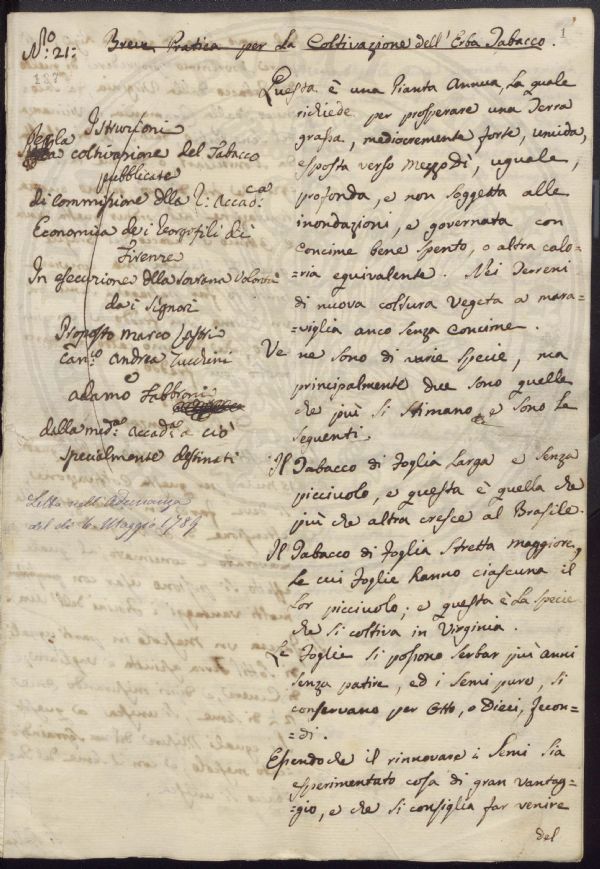 N.ro 21:
187
1
Breve Pratica per La Coltivazione dell'Erba Tabacco.
Istruzioni
Per la coltivazione del Tabacco
pubblicate
di commissione dlla R: Accad:ca
Economica de i Georgofili di
Firenze
In esecuzione dlla sovrana volontà
da i Signori
Proposto Marco Lastri
Can:co Andrea Zucchini
e
Adamo Fabbroni
dalla med:a Accad:a a ciò
specialmente destinati
Letta nell'Adunanza
del dì 6 Maggio 1789
Questa è una Pianta Annua, La quale
richiede per prosperare una Terra
grassa, mediocremente forte, umida,
esposta verso Mezzo Dì, uguale,
profonda, e non soggetta alle
inondazioni, e governata con
Concime bene spento, o altra calo=
=ria equivalente. Nei Terreni
di nuova coltura vegeta a mara=
=viglia anco senza Concime.
Ve ne sono di varie specie, ma
principalmente due sono quelle
che più si stimano e sono le
seguenti.
Il Tabacco di foglia Larga e senza
picciuolo, e questa è quella che
più che altra cresce al Brasile.
Il Tabacco di foglia stretta maggiore,
le cui foglie hanno ciascuna il
lor picciuolo; e questa è La specie
che si coltiva in Virginia.
Le foglie si possono serbar più anni
senza patire, ed i semi pure, si
conservano per Otto, o Dieci, fecon=
=di.
Essendo che il rinnovare i Semi sia
esperimentato cosa di gran vantag=
=gio, e che si consiglia far venire
del